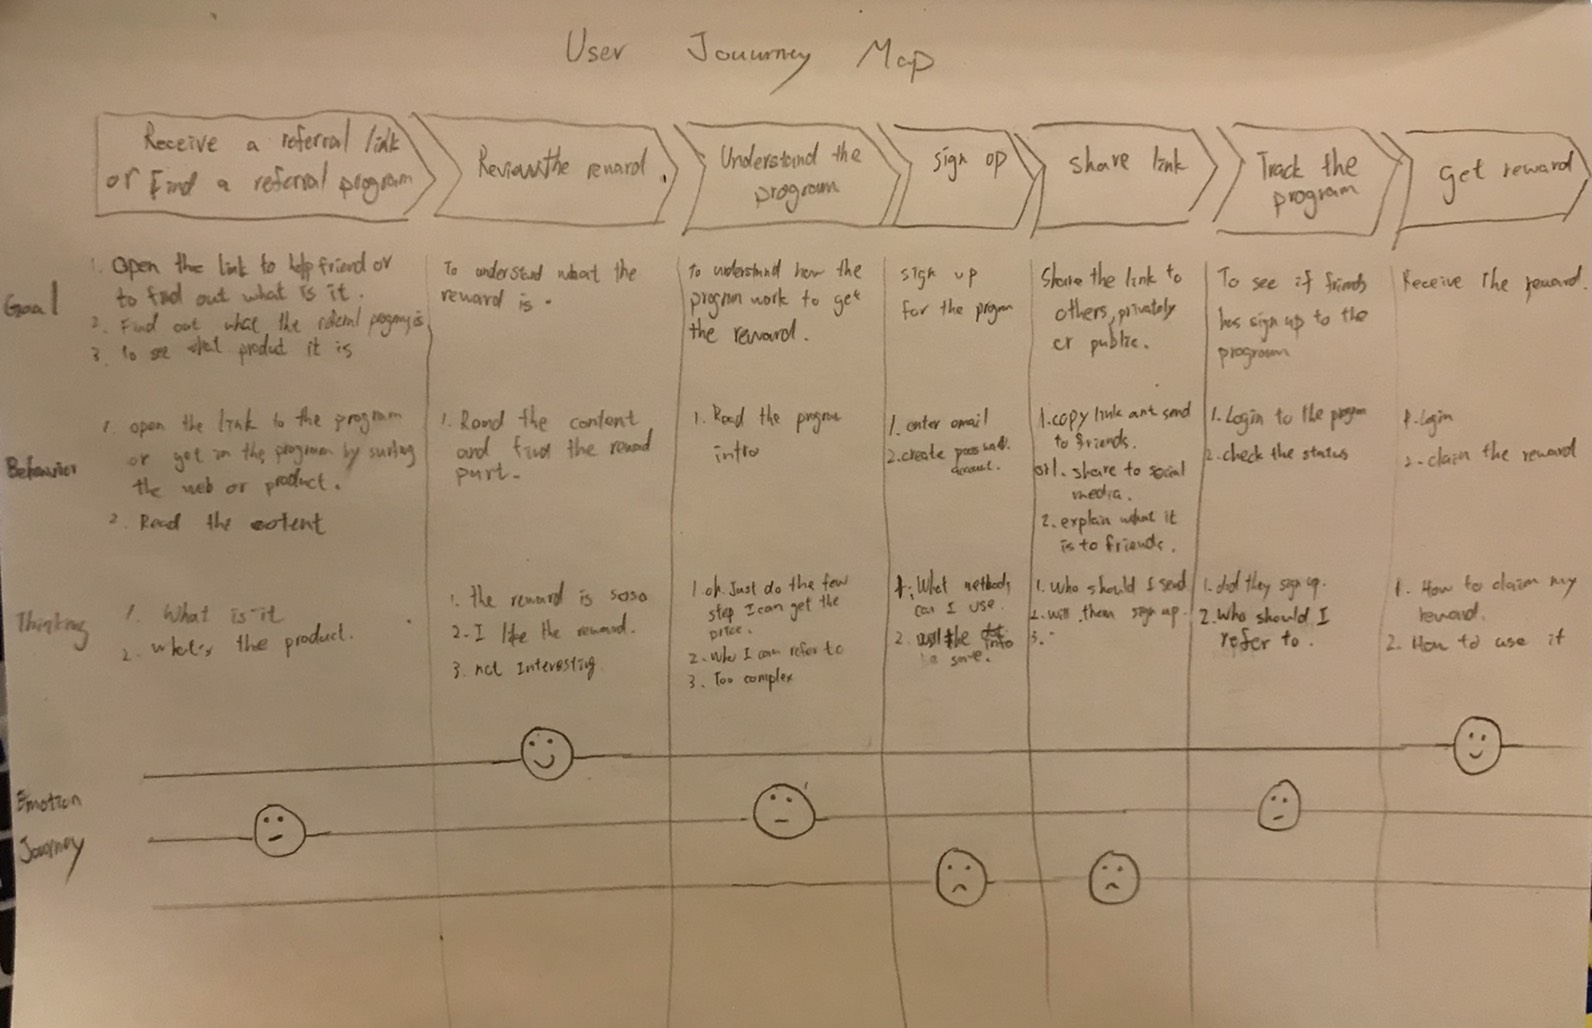 User Jouurney Map
Receive a referral link
or Find a referral program
Review the reward.
Understand the
program
sign up
share link
Track the
program
get reward
Goal
1. Open the link to help friend or
to find out what is it.
2. Find out what the referral program is
3. To see what product it is
To understand what the
reward is.
To understand how the
program work to get
the reward.
sign up
for the program
Share the link to
others, privately
or public.
To see if friends
has sign up to the
program
Receive the reward.
Behavior
1. open the link to the program
or get in the program by surfing
the web or product.
2. Read the content
1. Read the content
and find the reward
part.
1. Read the program
intro
1. enter email
2. create password.
account.
1. copy link and send
to friends.
or 1. share to social
media.
2. explain what it
is to friends.
1. Login to the program
2. check the status
1. Login
2. claim the reward
Thinking
1. What is it
2. what's the product.
1. the reward is soso
2. I like the reward.
3. not interesting
1. oh Just do the few
step I can get the
price.
2. Who I can refer to
3. Too complex
1. What methods
can I use.
2. will the info
be safe.
1. who should I send
2. will them sign up.
3.
1. did they sign up.
2. who should I
refer to.
1. How to claim my
reward.
2. How to use it
Emotion
Journey